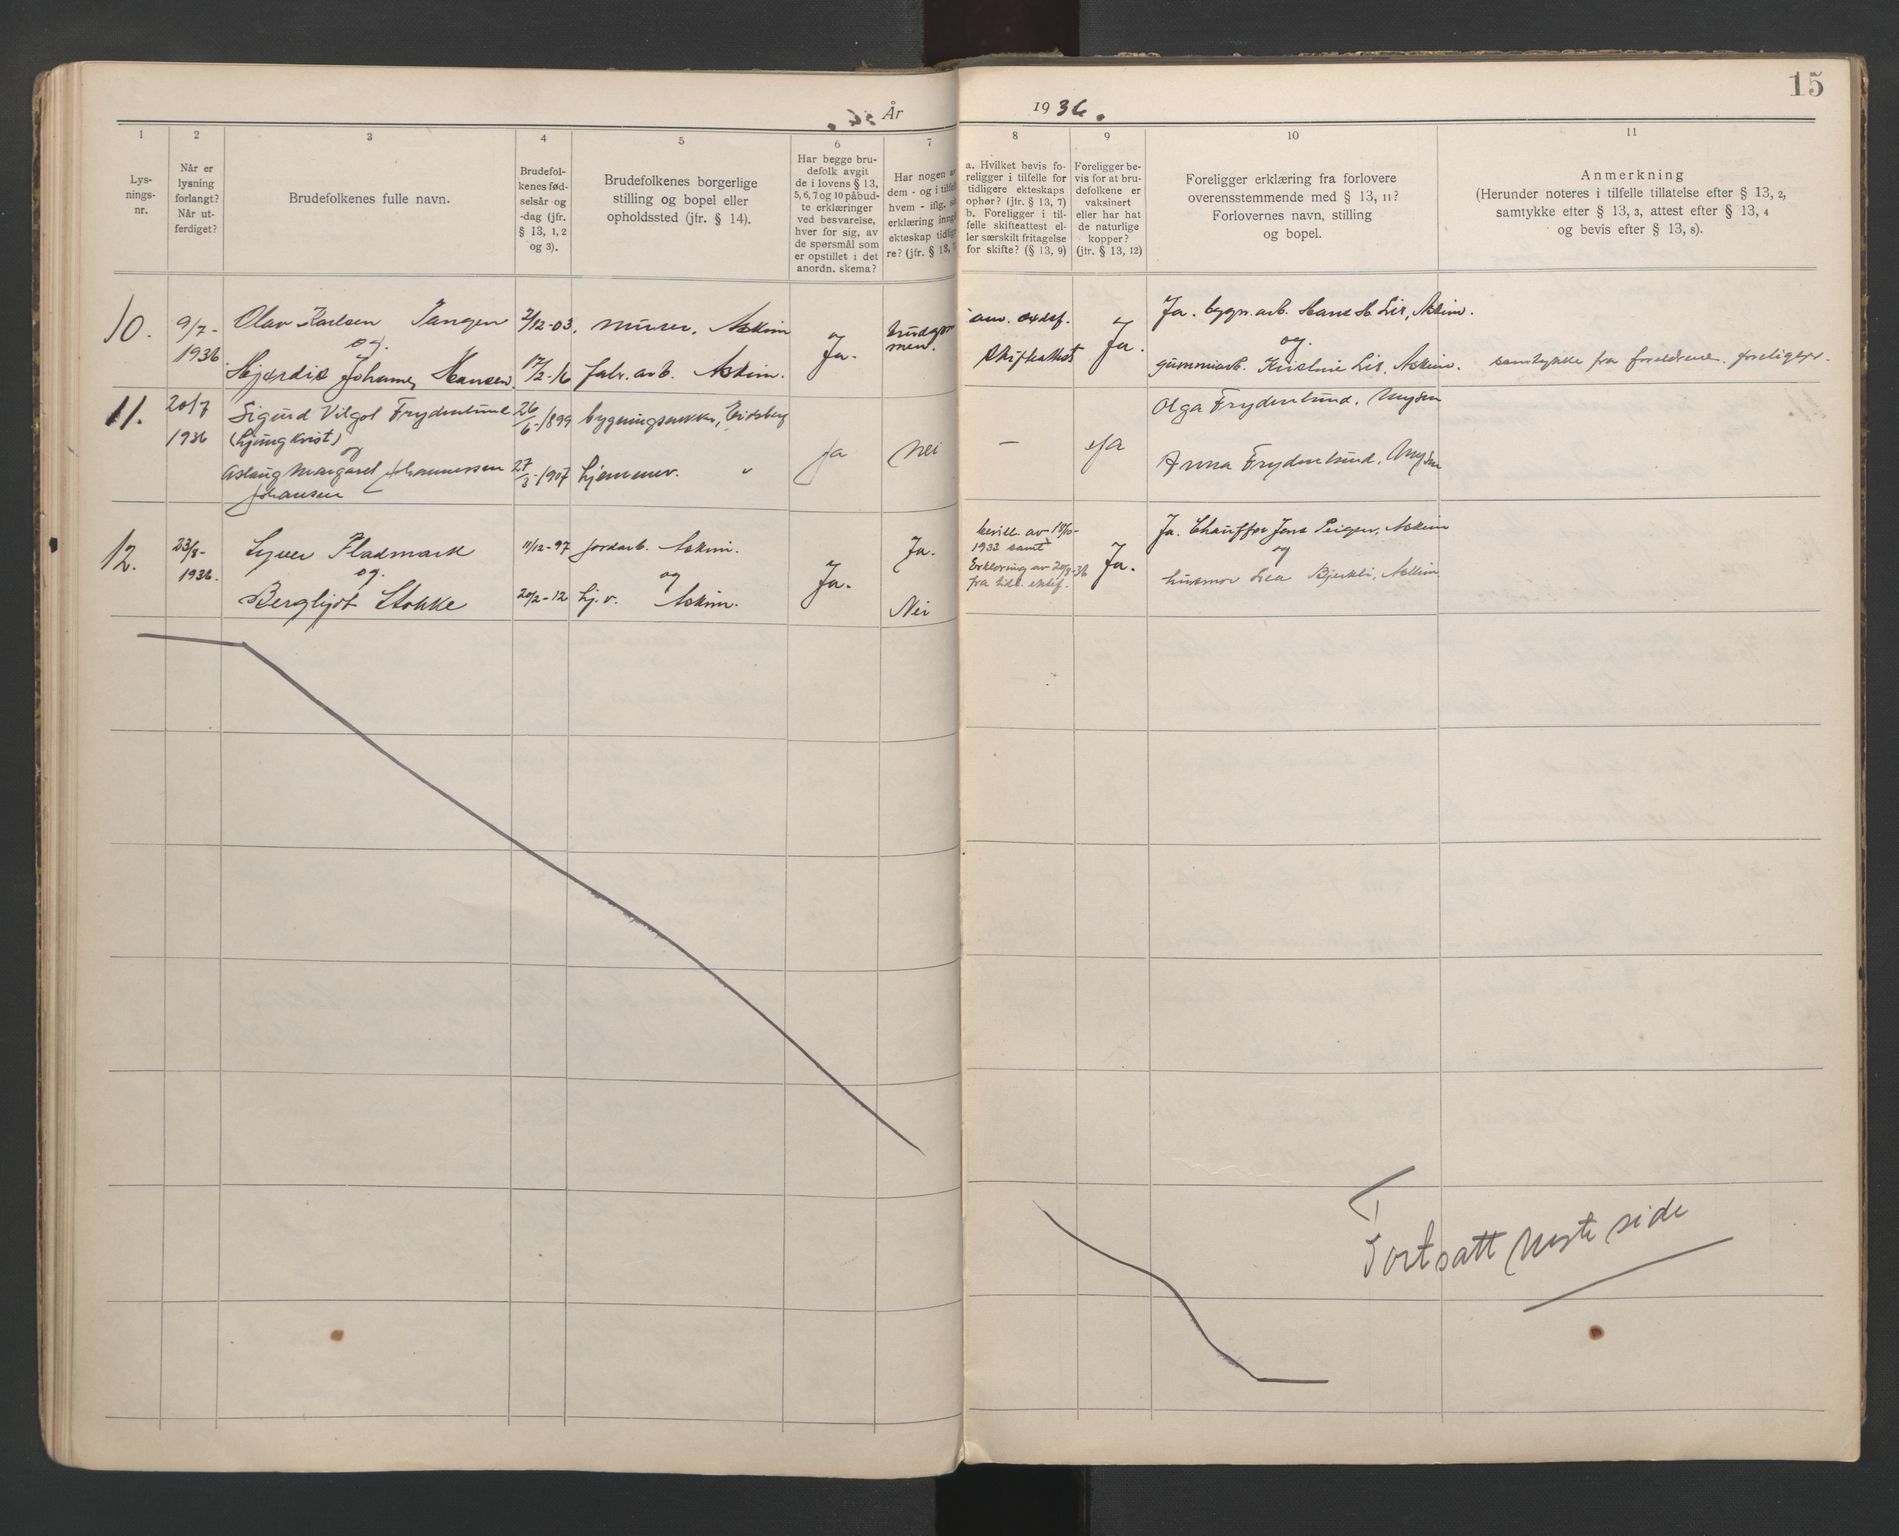 15
År 1936.
1 2 3 4 5 6 7 8 9 10 11
Lys-
nings-
nr.
Når er
lysning
forlangt?
Når ut-
ferdiget?
Brudefolkenes fulle navn.
Brudefol-
kenes fød-
selsår og
-dag (jfr.
§ 13, 1, 2
og 3).
Brudefolkenes borgerlige
stilling og bopel eller
opholdssted (jfr. § 14).
Har begge bru-
defolk avgit
de i lovens § 13,
5, 6, 7 og 10 påbud-
te erklæringer
ved besvarelse,
hver for sig, av
de spørsmål som
er opstillet i det
anordn. skema?
Har nogen av
dem - og i tilfelle
hvem - iflg.
erklæring inngå
ekteskap tidlige-
re? (jfr. § 13, 7
a. Hvilket bevis fo-
religger i tilfelle for
tidligere ekteskaps
ophør? (jfr. § 13, 7)
b. Foreligger i til-
felle skifteattest el-
ler særskilt fritagelse
for skifte? (§ 13, 9)
Foreligger be-
vis for at bru-
defolkene er
vaksinert
eller har hat
de naturlige
kopper?
(jfr. § 13, 12)
Foreligger erklæring fra forlovere
overensstemmende med § 13, 11?
Forlovernes navn, stilling
og bopel.
Anmerkning
(Herunder noteres i tilfelle tillatelse efter § 13, 2,
samtykke efter § 13, 3, attest efter § 13, 4
og bevis efter § 13, 8).
10. 9/7- 1936
Olav Karlsen Tangen 2/12-03. murer, Askim
og
Hjørdis Johanne Hansen. 17/2-16 fabr. arb. Askim.
Ja. brudgom
men.
skifteattest
Ja.
Ja. bygn. arb. Hans H. Lie, Askim.
og
gummiarb. Kristine Lie, Askim. samtykke fra foreldrene foreligger.
11. 20/7 1936
Sigurd Vilgot Frydenlund 26/6-1899 bygningssnekker, Eidsberg
(Ljungkvist)
og
Aslaug Margaret Johannessen 27/3-1907 hjemmev. "
Johansen
Ja Nei — Ja
Olga Frydenlund, Mysen
Anna Frydenlund, Mysen
12. 23/8- 1936.
Syver Pladmark 11/12-97 jordarb. Askim.
og og
Bergljot Stokke 20/2-12 hj. v. Askim.
Ja. Ja.
Nei
bevill. av 18/10-
1933 samt
Erklæring av 20/8-36
fra tidl. ektef.
Ja.
Ja. Chauffør Jens Teigen, Askim
og
husmor Lea Bjerkli, Askim
Fortsatt neste side